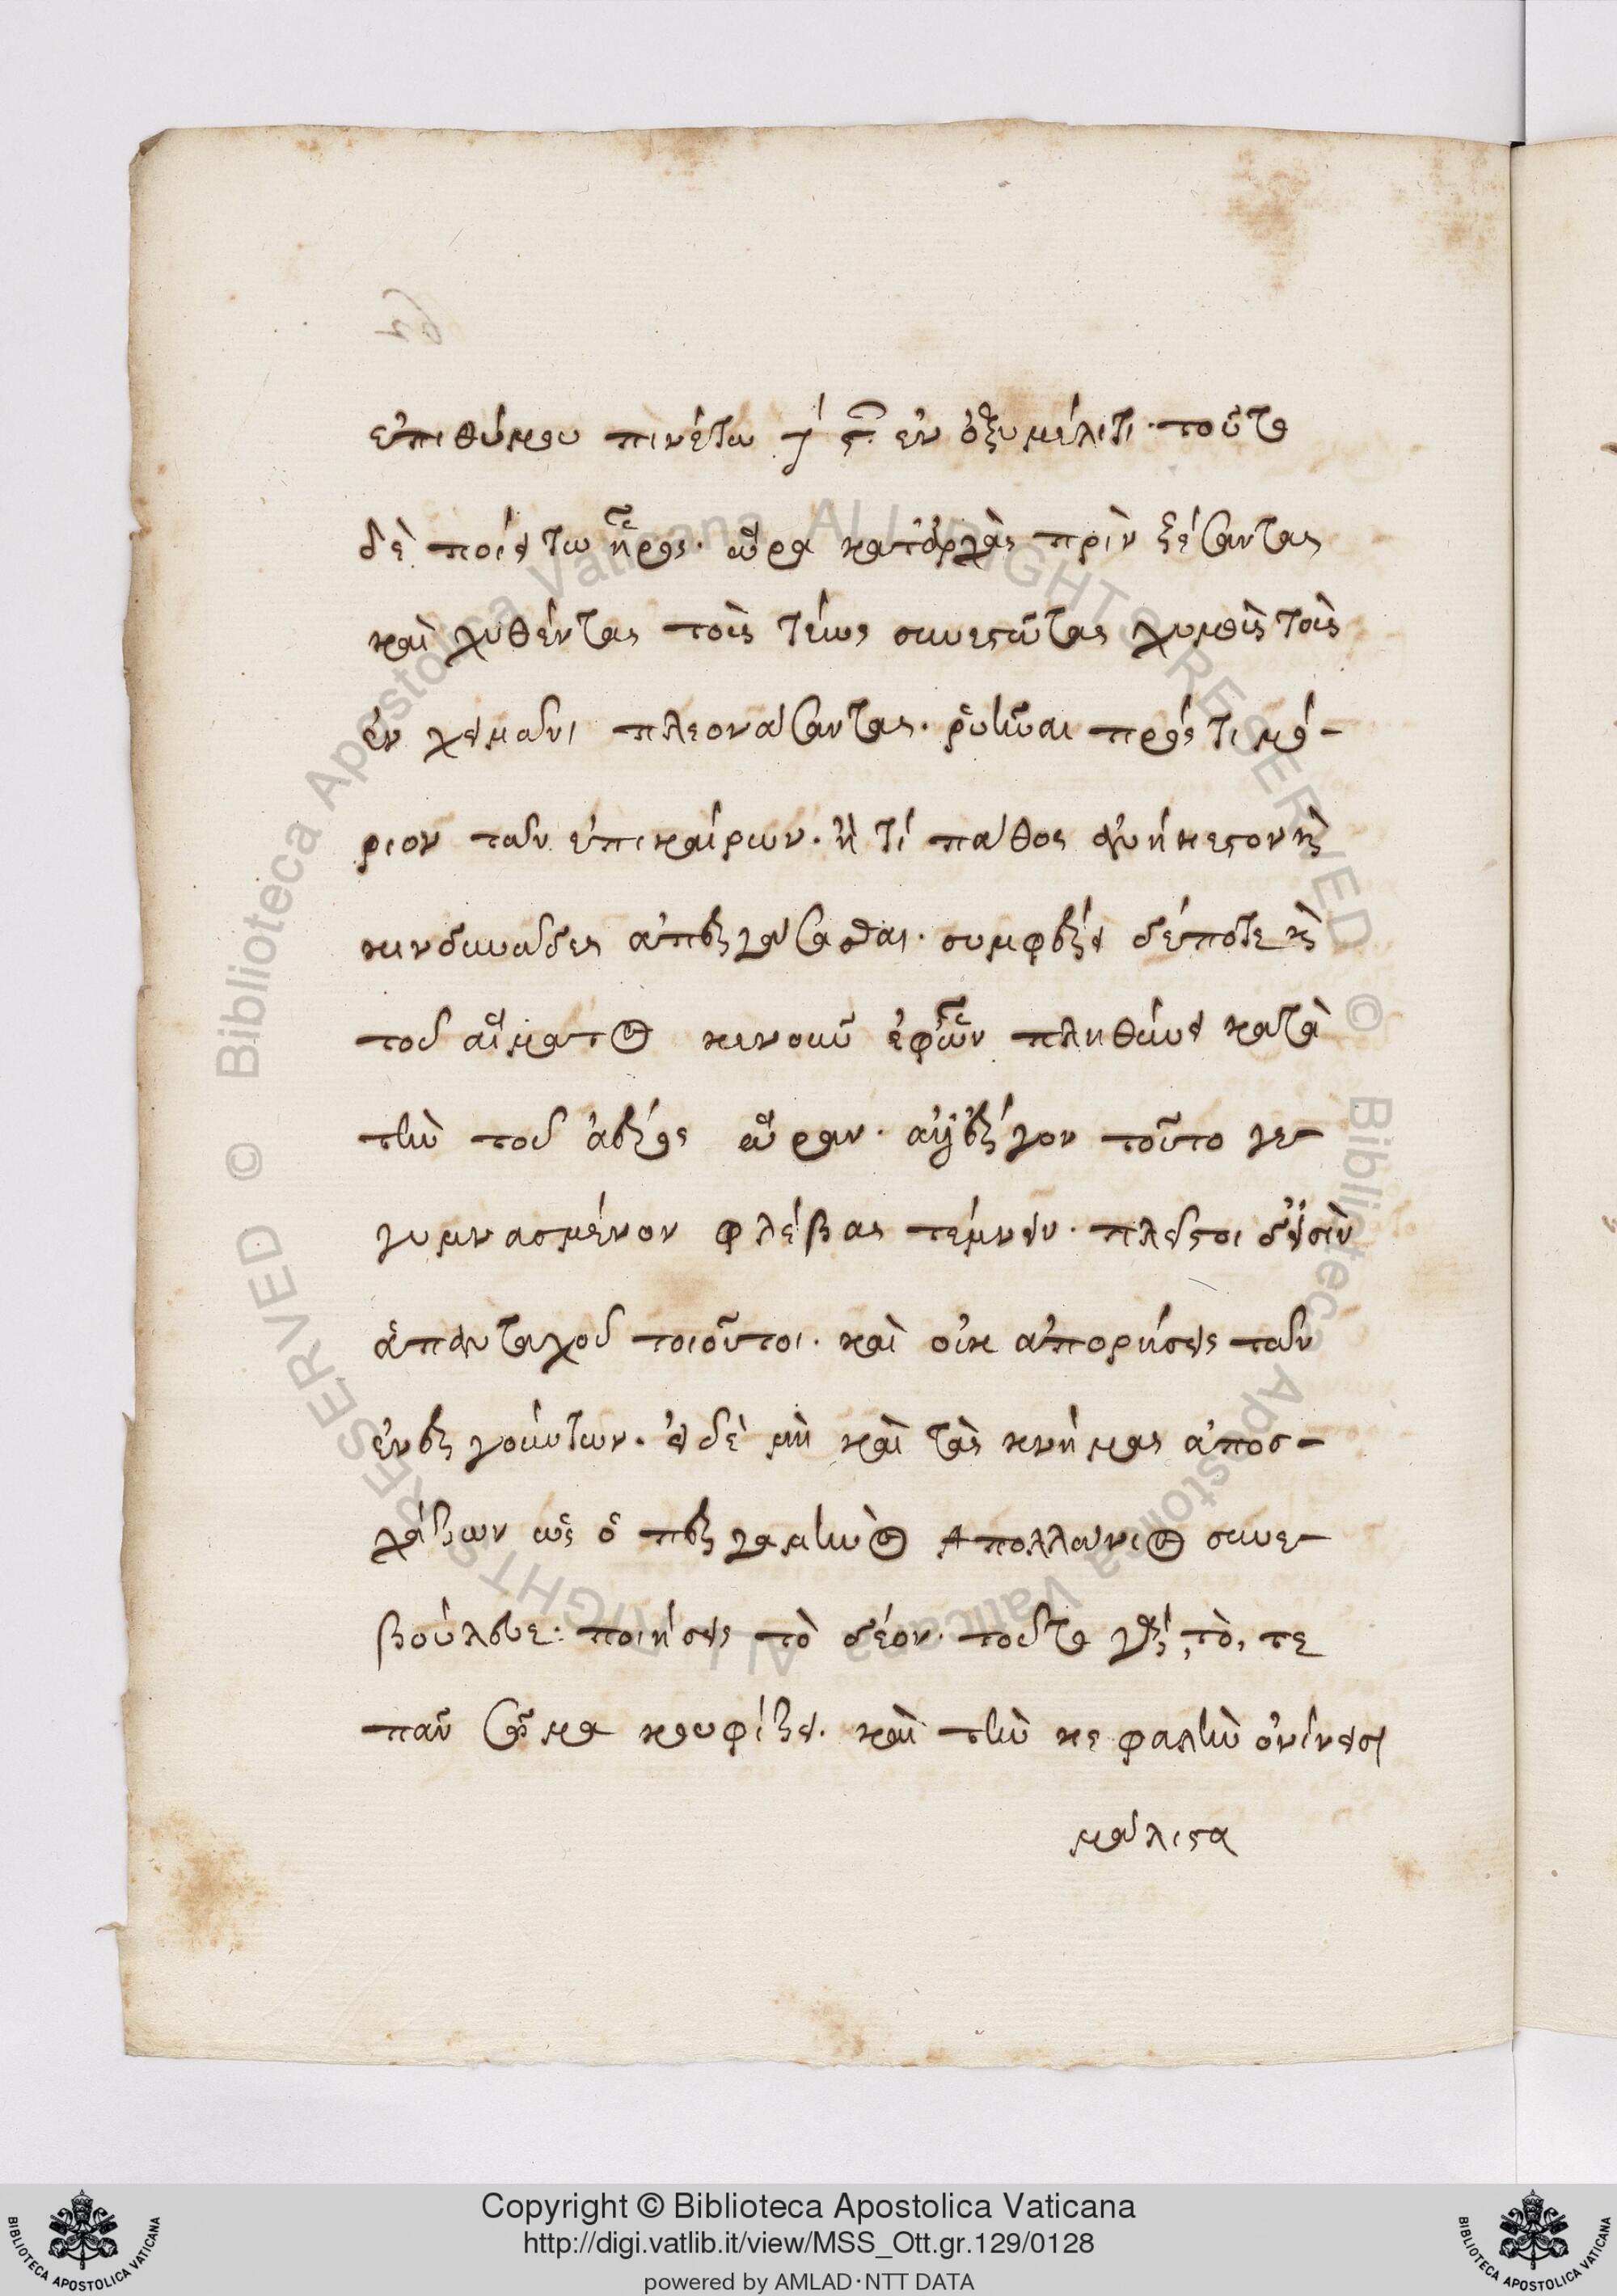 ἐπιθύμου πινέτω ἐν ὀξυμέλιτι· τοῦτο
δὲ ποιείτω ἦρος· ὥρα κατ' ἀρχὰς πρὶν ζέσαντας
καὶ χυθέντας τοὺς τέως συνεστῶτας χυμοὺς τοὺς
ἐν χειμῶνι πλεονάσαντας· ῥυῆναι πρός τι μό-
ριον τῶν ἐπικαίρων· ἤ τι πάθος ἀνήκεστον καὶ
κινδυνῶδες ἀπεργάσασθαι· συμφέρει δέ ποτε καὶ
τοῦ αἵματος κενοῦν ἐφ' ὧν πληθύει κατὰ
τὴν τοῦ ἀέρος ὥραν· ἀνὴρ ἔργον τοῦτο γε-
γυμνασμένον φλέβας τέμνειν· πλεῖστοι δ' εἰσὶν
ἁπανταχοῦ τοιοῦτοι· καὶ οὐκ ἀπορήσεις τῶν
ἐνεργούντων· εἰ δὲ μὴ καὶ τὰς κνήμας ἀποσ-
χάζων ὡς ὁ περγαμηνὸς Ἀπολλώνιος συνε-
βούλευε: ποιήσεις τὸ δέον· τοῦτο γὰρ τό, τε
πᾶν σῶμα κουφίζει· καὶ τὴν κεφαλὴν ὀνίνησι
μάλιστα
Copyright © Biblioteca Apostolica Vaticana
http://digi.vatlib.it/view/MSS_Ott.gr.129/0128
powered by AMLAD·NTT DATA
BIBLIOTECA APOSTOLICA VATICANA
BIBLIOTECA APOSTOLICA VATICANA
© Biblioteca Apostolica Vaticana ALL RIGHTS RESERVED © Biblioteca Apostolica Vaticana ALL RIGHTS RESERVED